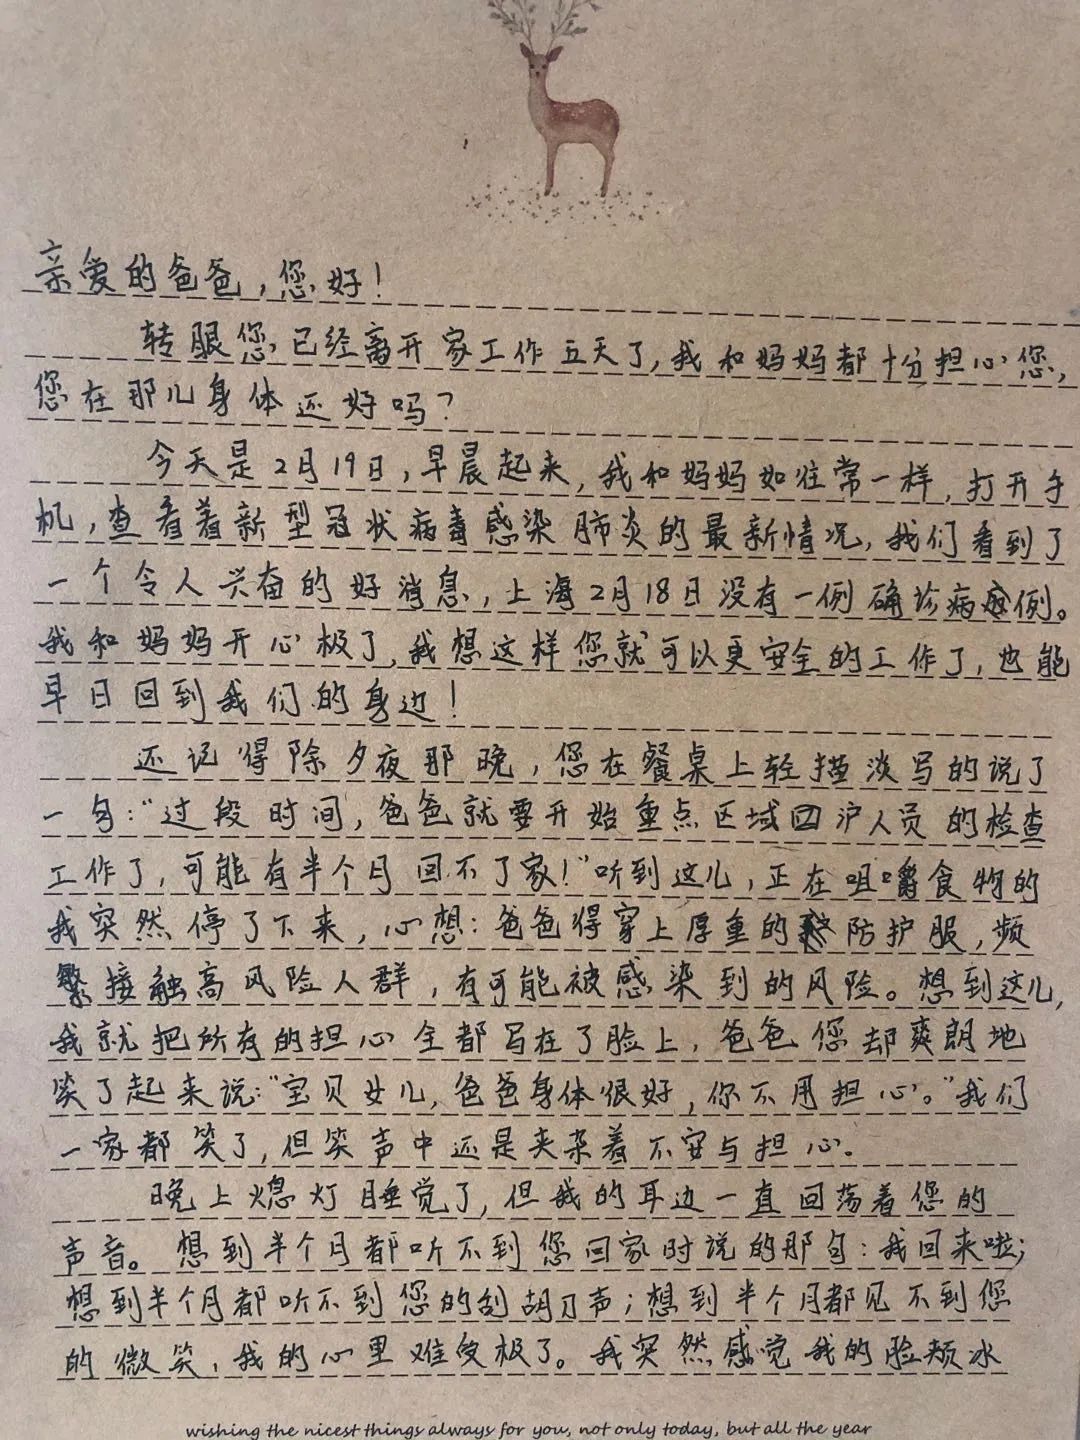 亲爱的爸爸，您好！
转眼您已经离开家工作五天了，我和妈妈都十分担心您，
您在那儿身体还好吗？
今天是2月19日，早晨起来，我和妈妈如往常一样，打开手
机，查看着新型冠状病毒感染肺炎的最新情况，我们看到了
一个令人兴奋的好消息，上海2月18日没有一例确诊病例。
我和妈妈开心极了，我想这样您就可以更安全的工作了，也能
早日回到我们的身边！
还记得除夕夜那晚，您在餐桌上轻描淡写的说了
一句：“过段时间，爸爸就要开始重点区域回沪人员的检查
工作了，可能有半个月回不了家！”听到这儿，正在咀嚼食物的
我突然停了下来，心想：爸爸得穿上厚重的防护服，频
繁接触高风险人群，有可能被感染到的风险。想到这儿，
我就把所有的担心全都写在了脸上，爸爸您却爽朗地
笑了起来说：“宝贝女儿，爸爸身体很好，你不用担心。”我们
一家都笑了，但笑声中还是夹杂着不安与担心。
晚上熄灯睡觉了，但我的耳边一直回荡着您的
声音。想到半个月都听不到您回家时说的那句：我回来啦；
想到半个月都听不到您的刮胡刀声；想到半个月都见不到您
的微笑，我的心里难受极了。我突然感觉我的脸颊冰
wishing the nicest things always for you, not only today, but all the year